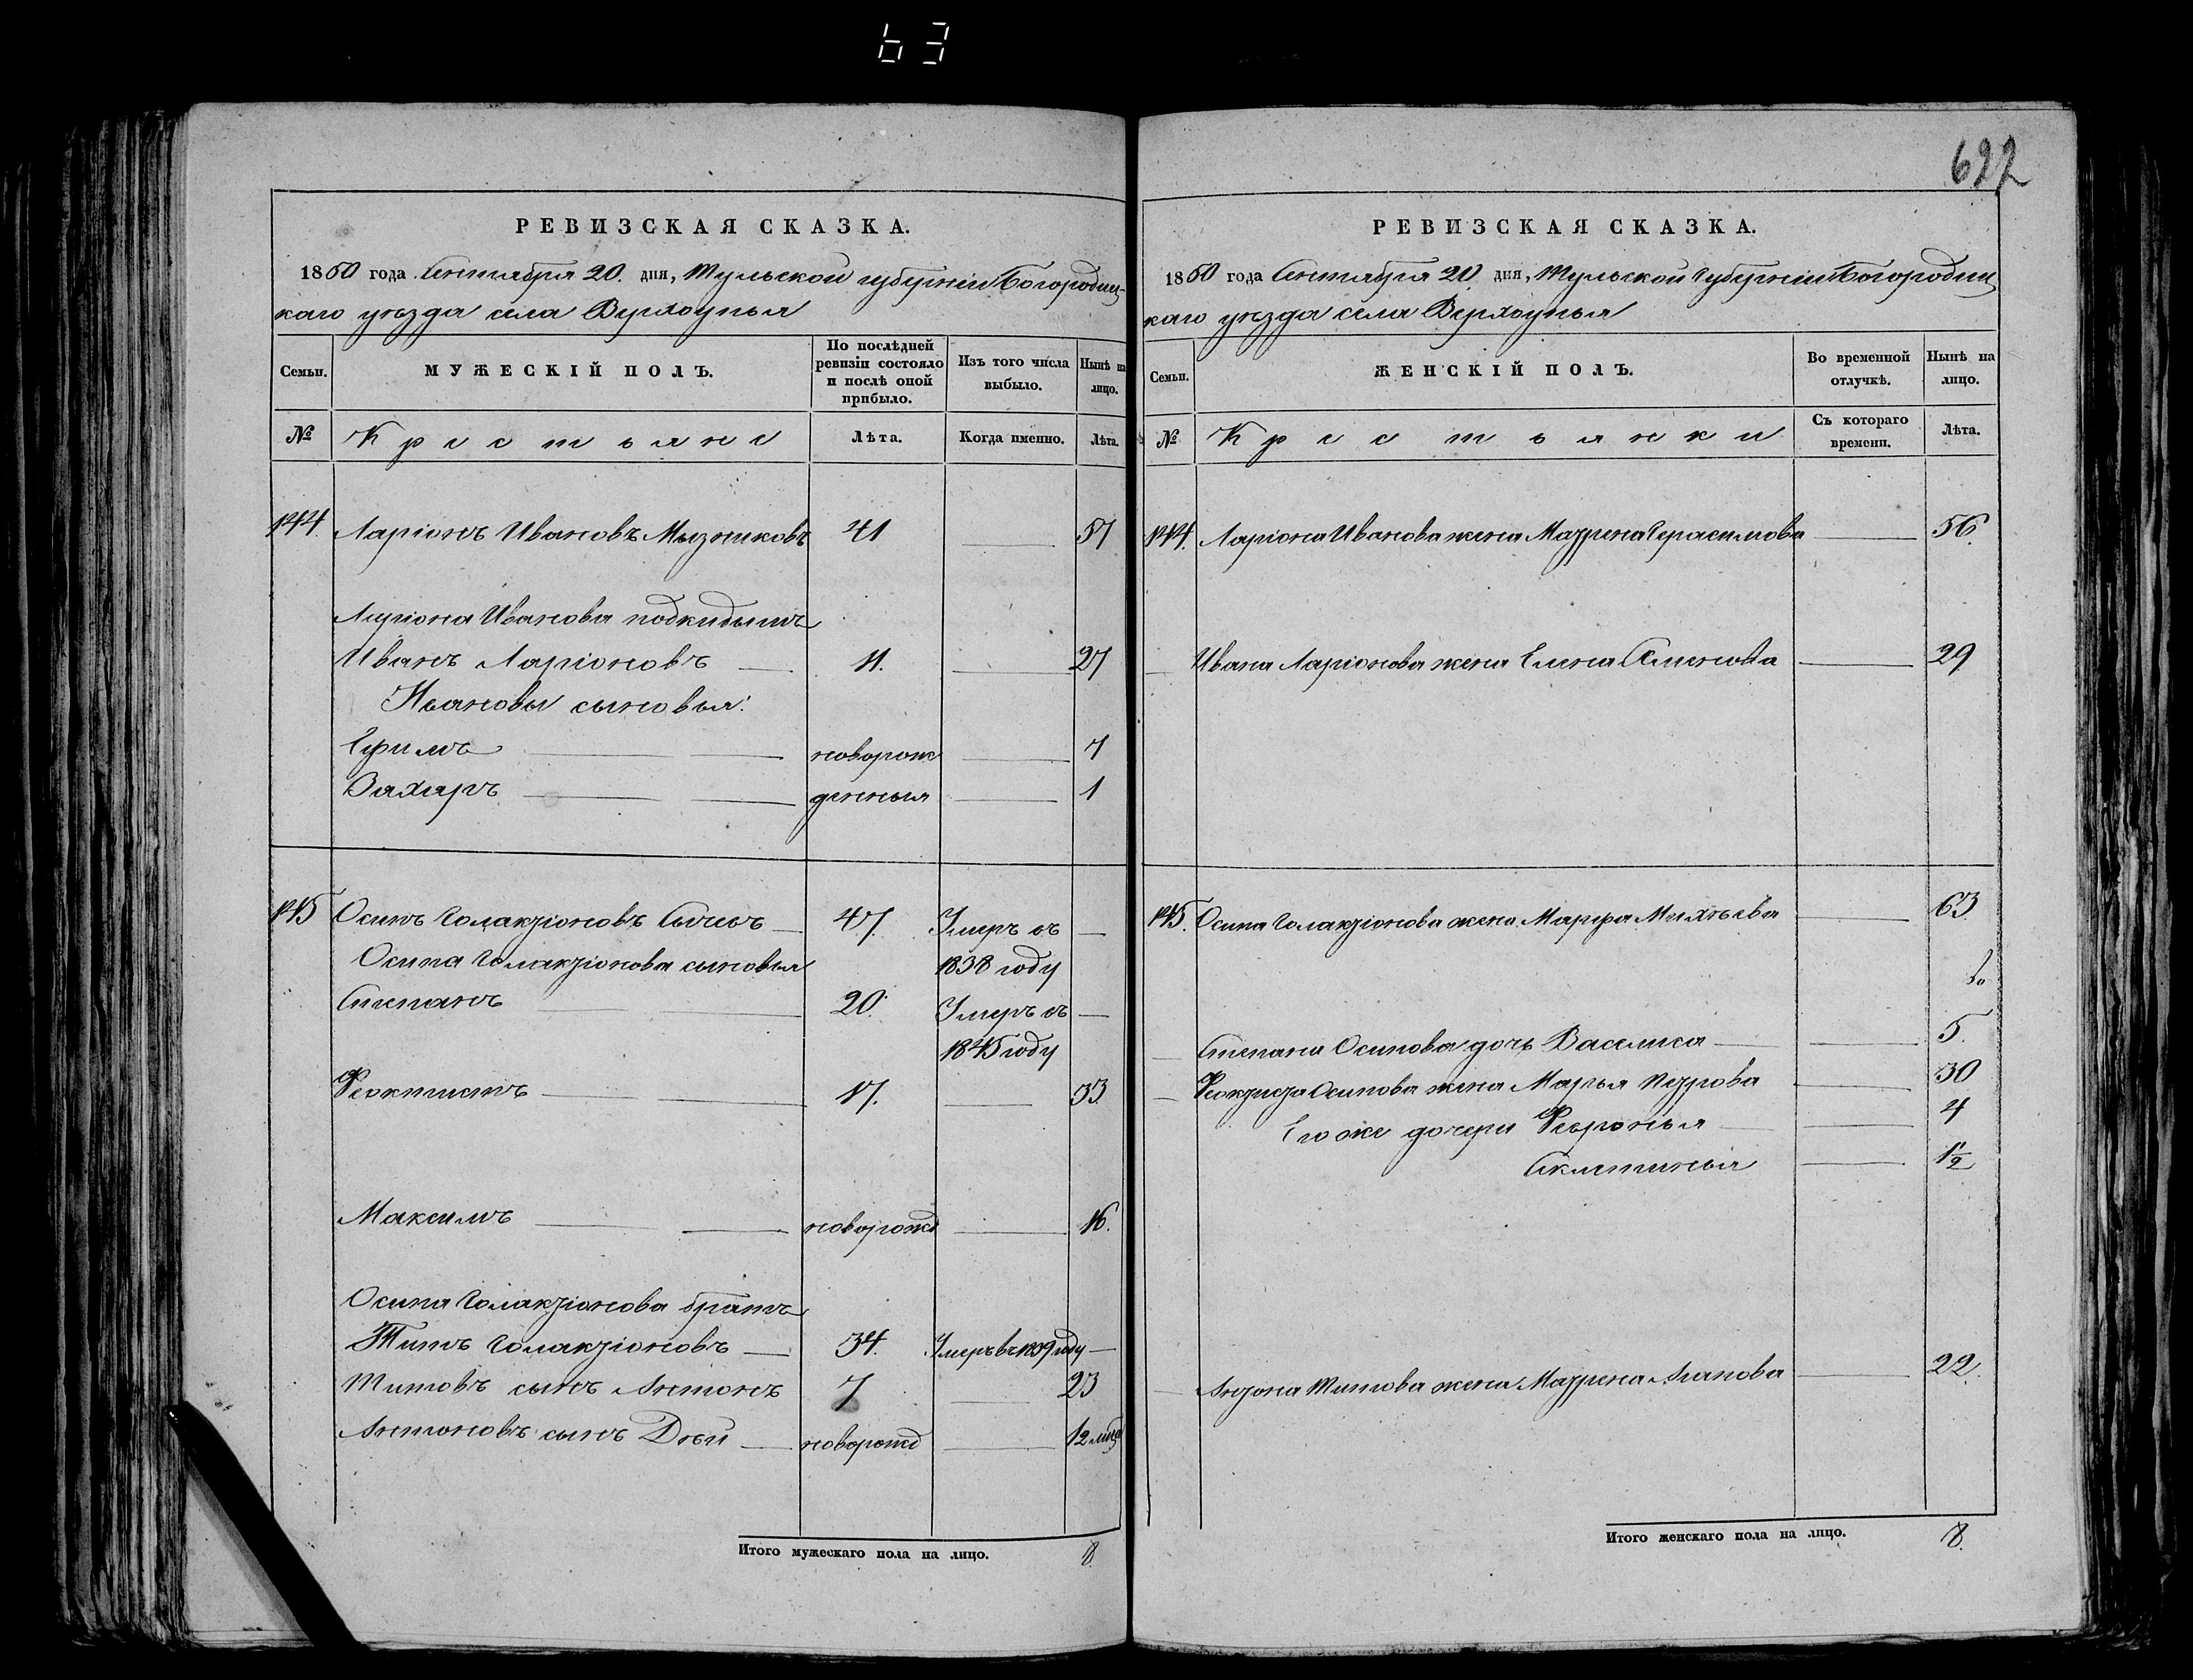 63
622
РЕВИЗСКАЯ СКАЗКА.
1850 года Сентября 20. дня, Тульской губерніи Богородиц-
каго уѣзда села Верхоупья
Семьи.
МУЖЕСКІЙ ПОЛЪ.
По послѣдней ревизіи состояло и послѣ оной прибыло.
Изъ того числа выбыло.
Нынѣ на лицо.
№
Крестьяне
Лѣта.
Когда именно.
Лѣта.
144. Ларіонъ Ивановъ Мызниковъ 41 — 57
Ларіона Иванова подкидышъ
Иванъ Ларіоновъ — 11. — 27
Ивановы сыновья:
Ефимъ — новорож — 7
Захаръ — денныя — 1
145 Осипъ Голактіоновъ 47. Умеръ въ —
Осипа Голактіонова сыновья 1838 году
Степанъ — 20. Умеръ въ —
1845 году
Феоктистъ — 17. — 33
Максимъ — новорожд — 16.
Осипа Голактіонова братъ
Титъ Голактіоновъ — 34. Умеръ въ 1839 году —
Титовъ сынъ Антонъ 7 — 23
Антоновъ сынъ — новорожд — 12
Итого мужескаго пола на лицо. 8.
РЕВИЗСКАЯ СКАЗКА.
1850 года Сентября 20. дня, Тульской Губерніи Богородиц
каго уѣзда села Верхоупья
Семьи.
ЖЕНСКІЙ ПОЛЪ.
Во временной отлучкѣ.
Нынѣ на лицо.
№
Крестьянки
Съ котораго времени.
Лѣта.
144. Ларіона Иванова жена Матрена Герасимова — 56.
— Ивана Ларіонова жена Елена Семенова — 29
145. Осипа Голактіонова жена Марфа Михѣева — 63
— Степана Осипова дочь Василиса — 5.
— Феоктиста Осипова жена Марья Петрова — 30
Его же дочери Февронья — 4
— 1½
— Антона Титова жена Матрена — 22.
Итого женскаго пола на лицо. 8.